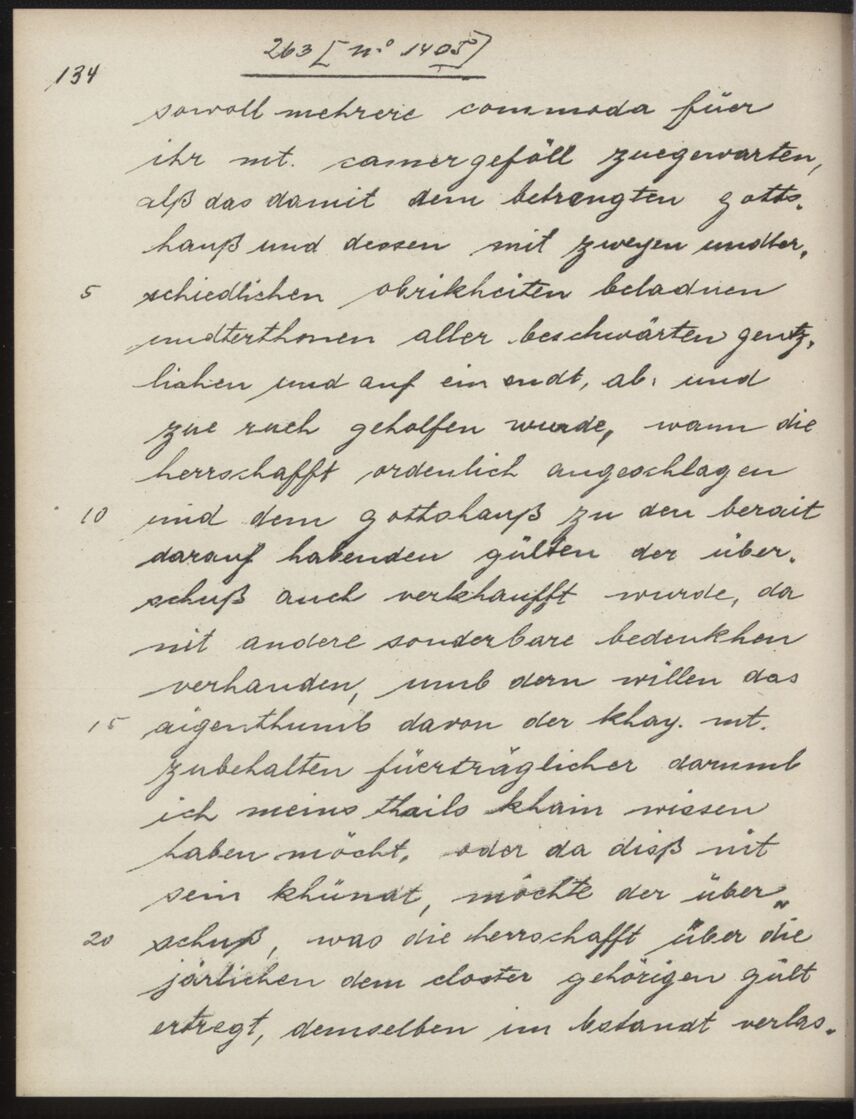 263 [ No 1405 ]
134
sowoll mehrere commoda füer
ihr mt. camergeföll zuegewarten,
alß das damit dem betrengten gotts-
hauß und dessen mit zweyen undter-
5 schiedlichen obrikheiten beladnen
undterthonen aller beschwärten gentz-
lichen und auf ein endt, ab- und
zue ruch geholfen wurde, wann die
herrschafft ordenlich angeschlagen
10 und dem gottshauß zu den berait
darauf habenden gülten der über-
schuß auch verkhaufft wurde, da
nit andere sonderbare bedenkhen
verhanden, umb dern willen das
15 aigenthumb davon der khay. mt.
zubehalten füerträglicher darumb
ich meins thails khain wissen
haben möcht, oder da diß nit
sein khündt, möchte der über-
20 schuß, was die herrschafft über die
järlichen dem closter gehörigen gült
ertregt, demselben im bstandt verlas-